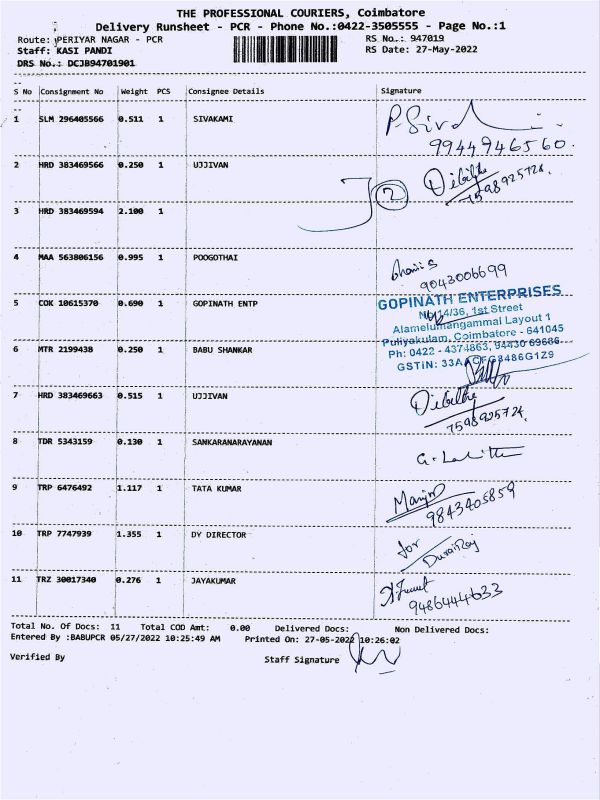 THE PROFESSIONAL COURIERS, Coimbatore
Delivery Runsheet - PCR - Phone No.:0422-3505555 - Page No.:1
Route: PERIYAR NAGAR - PCR RS No.: 947019
Staff: KASI PANDI RS Date: 27-May-2022
DRS No.: DCJB94701901
S No Consignment No Weight PCS Consignee Details Signature
1 SLM 296405566 0.511 1 SIVAKAMI
9944946560.
2 HRD 383469566 0.250 1 UJJIVAN
7598925724.
2
3 HRD 383469594 2.100 1
4 MAA 563806156 0.995 1 POOGOTHAI
9043006699
5 COK 10615370 0.690 1 GOPINATH ENTP
GOPINATH ENTERPRISES
14/36, 1st Street
Alamelumangammal Layout 1
Puliyakulam, Coimbatore - 641045
Ph: 0422 - 4374863, 94430 69686
GSTIN: 33A 8486G1Z9
6 MTR 2199438 0.250 1 BABU SHANKAR
7 HRD 383469663 0.515 1 UJJIVAN
7598925724.
8 TDR 5343159 0.130 1 SANKARANARAYANAN
G. Lalitha
9 TRP 6476492 1.117 1 TATA KUMAR
9843405859
10 TRP 7747939 1.355 1 DY DIRECTOR
for
DuraiRaj
11 TRZ 30017340 0.276 1 JAYAKUMAR
9486444633
Total No. Of Docs: 11 Total COD Amt: 0.00 Delivered Docs: Non Delivered Docs:
Entered By :BABUPCR 05/27/2022 10:25:49 AM Printed On: 27-05-2022 10:26:02
Verified By Staff Signature